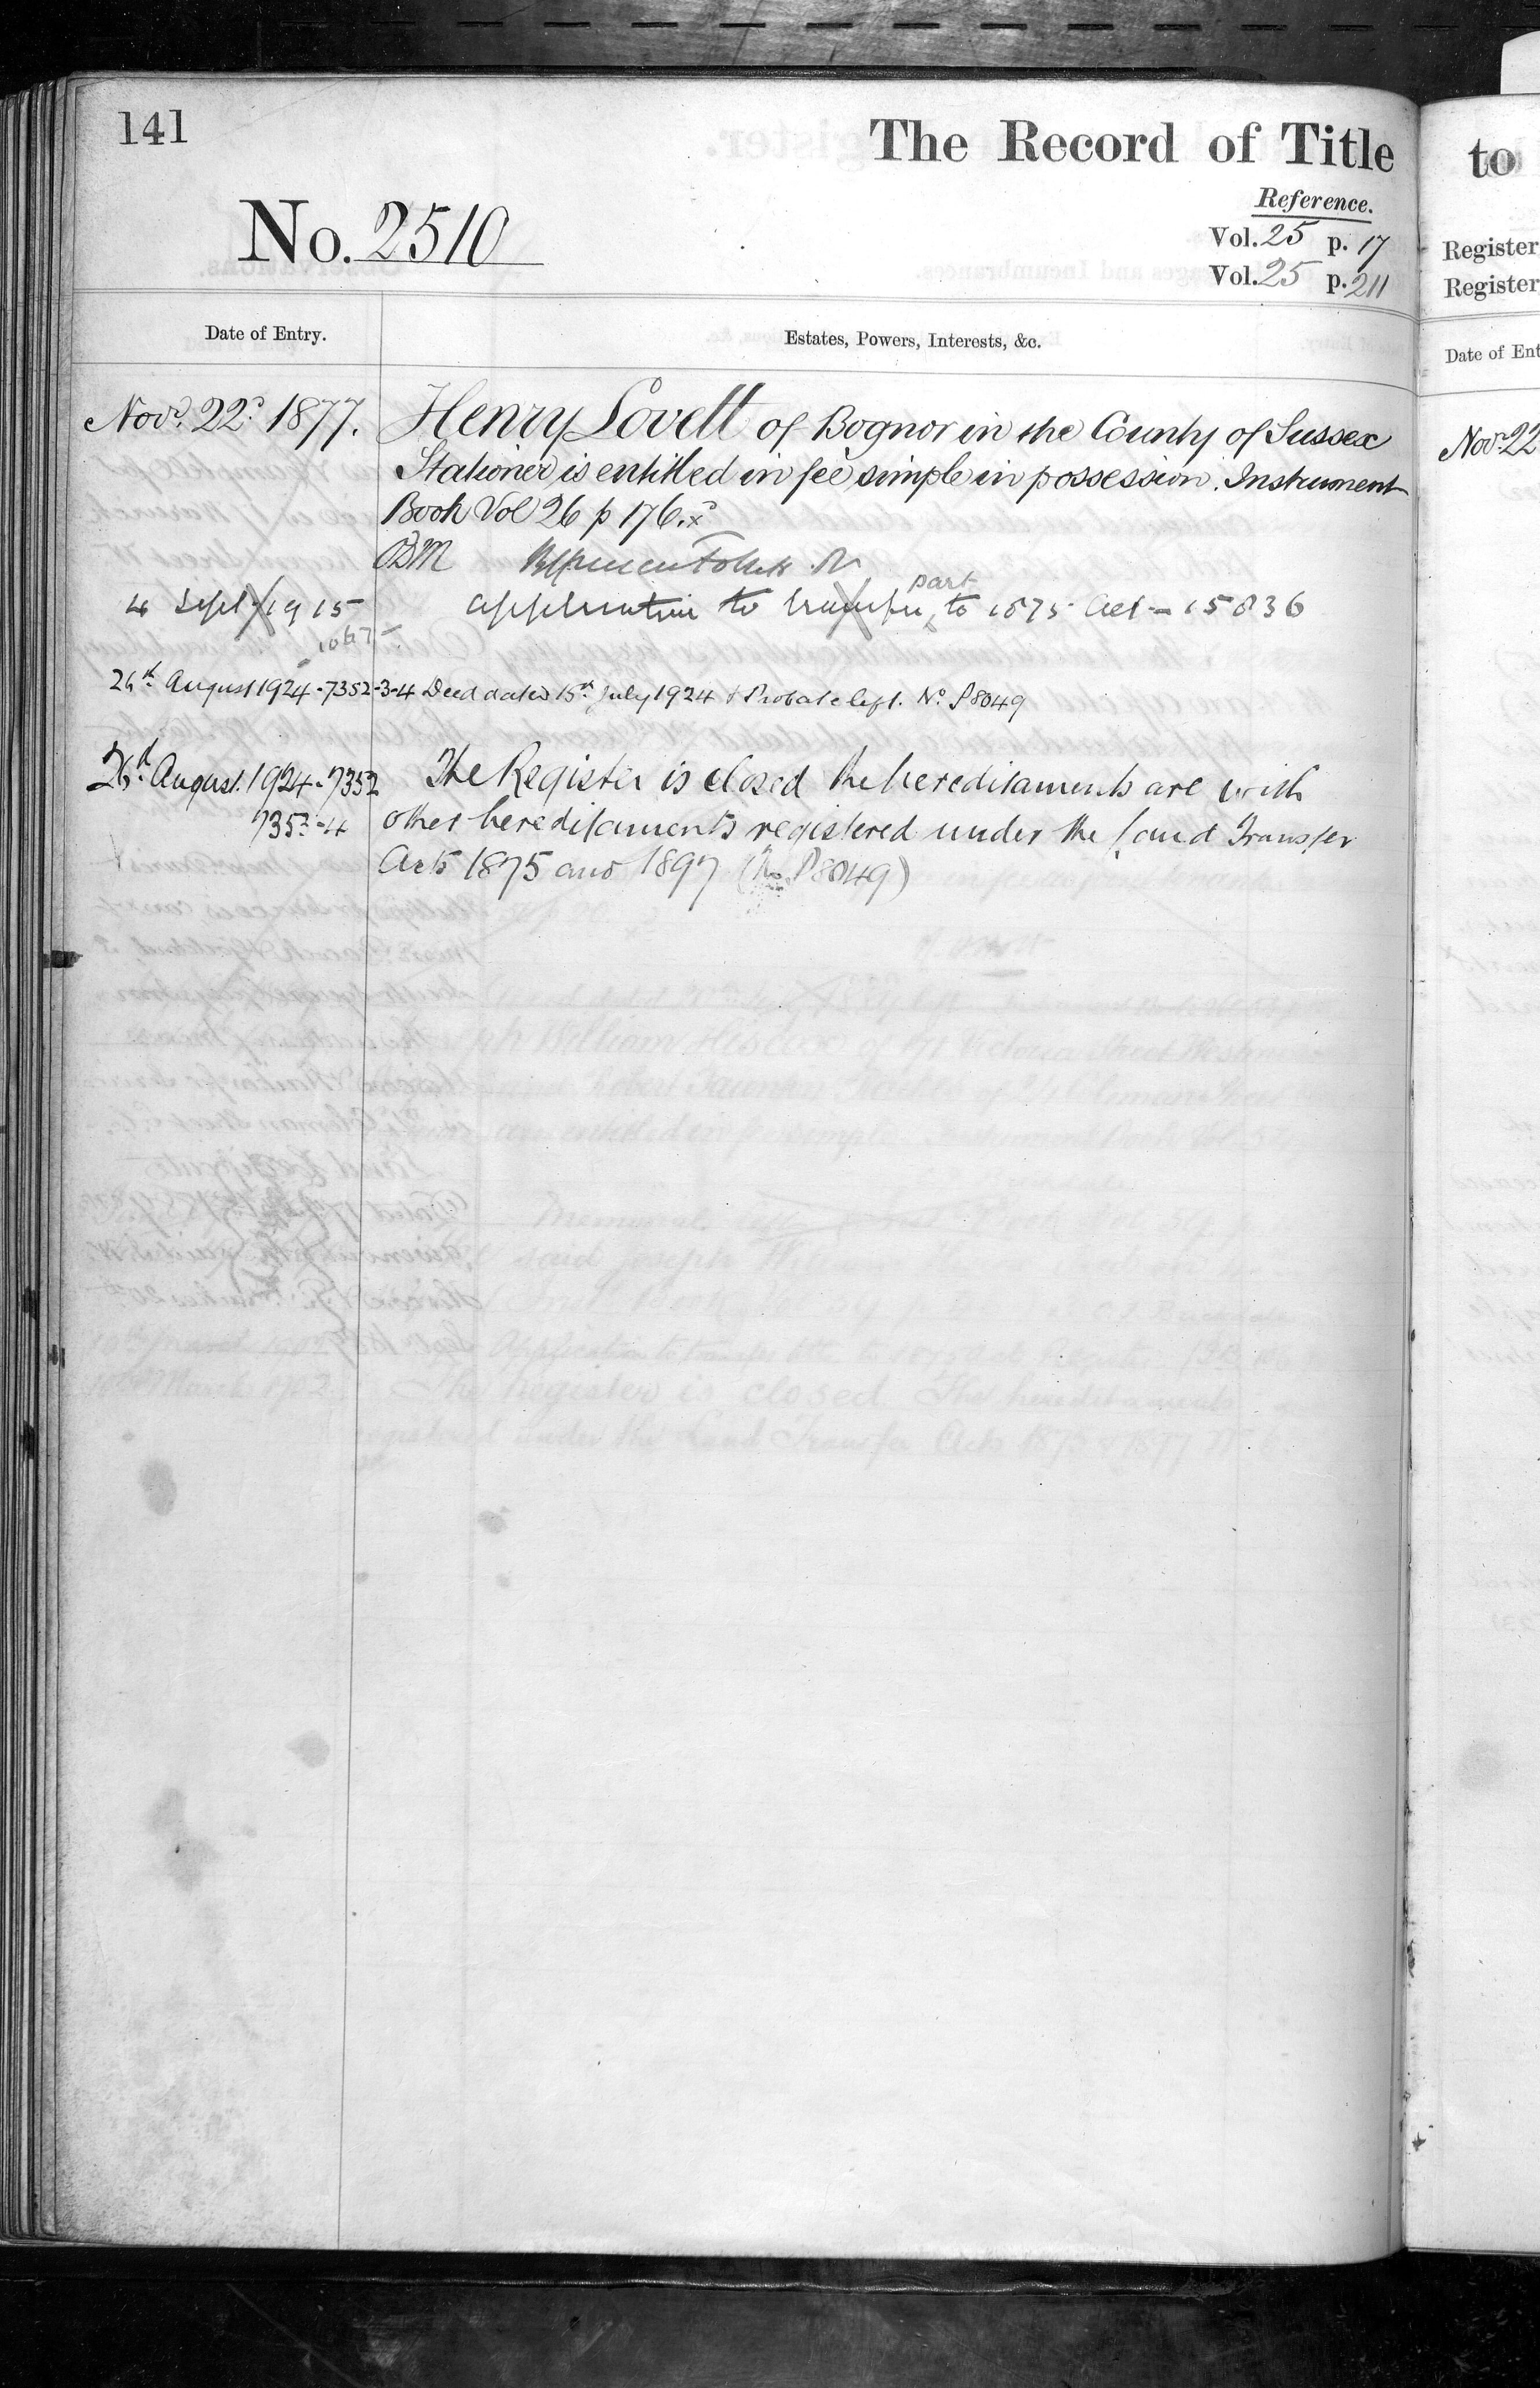 141
The Record of Title
to
Reference.
No. 2510
Vol. 25 p. 17
Vol. 25 p. 211
Register
Register
Date of Entry.
Estates, Powers, Interests, &c.
Date of Ent
Novr. 22d. 1877.
Henry Lovell of Bognor in the County of Sussex
Stationer is entitled in fee simple in possession. Instrument
Book Vol 26 p 176.
Nov 22
part
4 Sept 1915
application to transfer to 1875 Act - 15836
26th August 1924 - 7352-3-4 Deed dated 15th July 1924 & Probate left. No. P8049
26th August 1924 - 7352
7353-4
The Register is closed the hereditaments are with
other hereditaments registered under the Land Transfer
Acts 1875 and 1897 (No P8049)